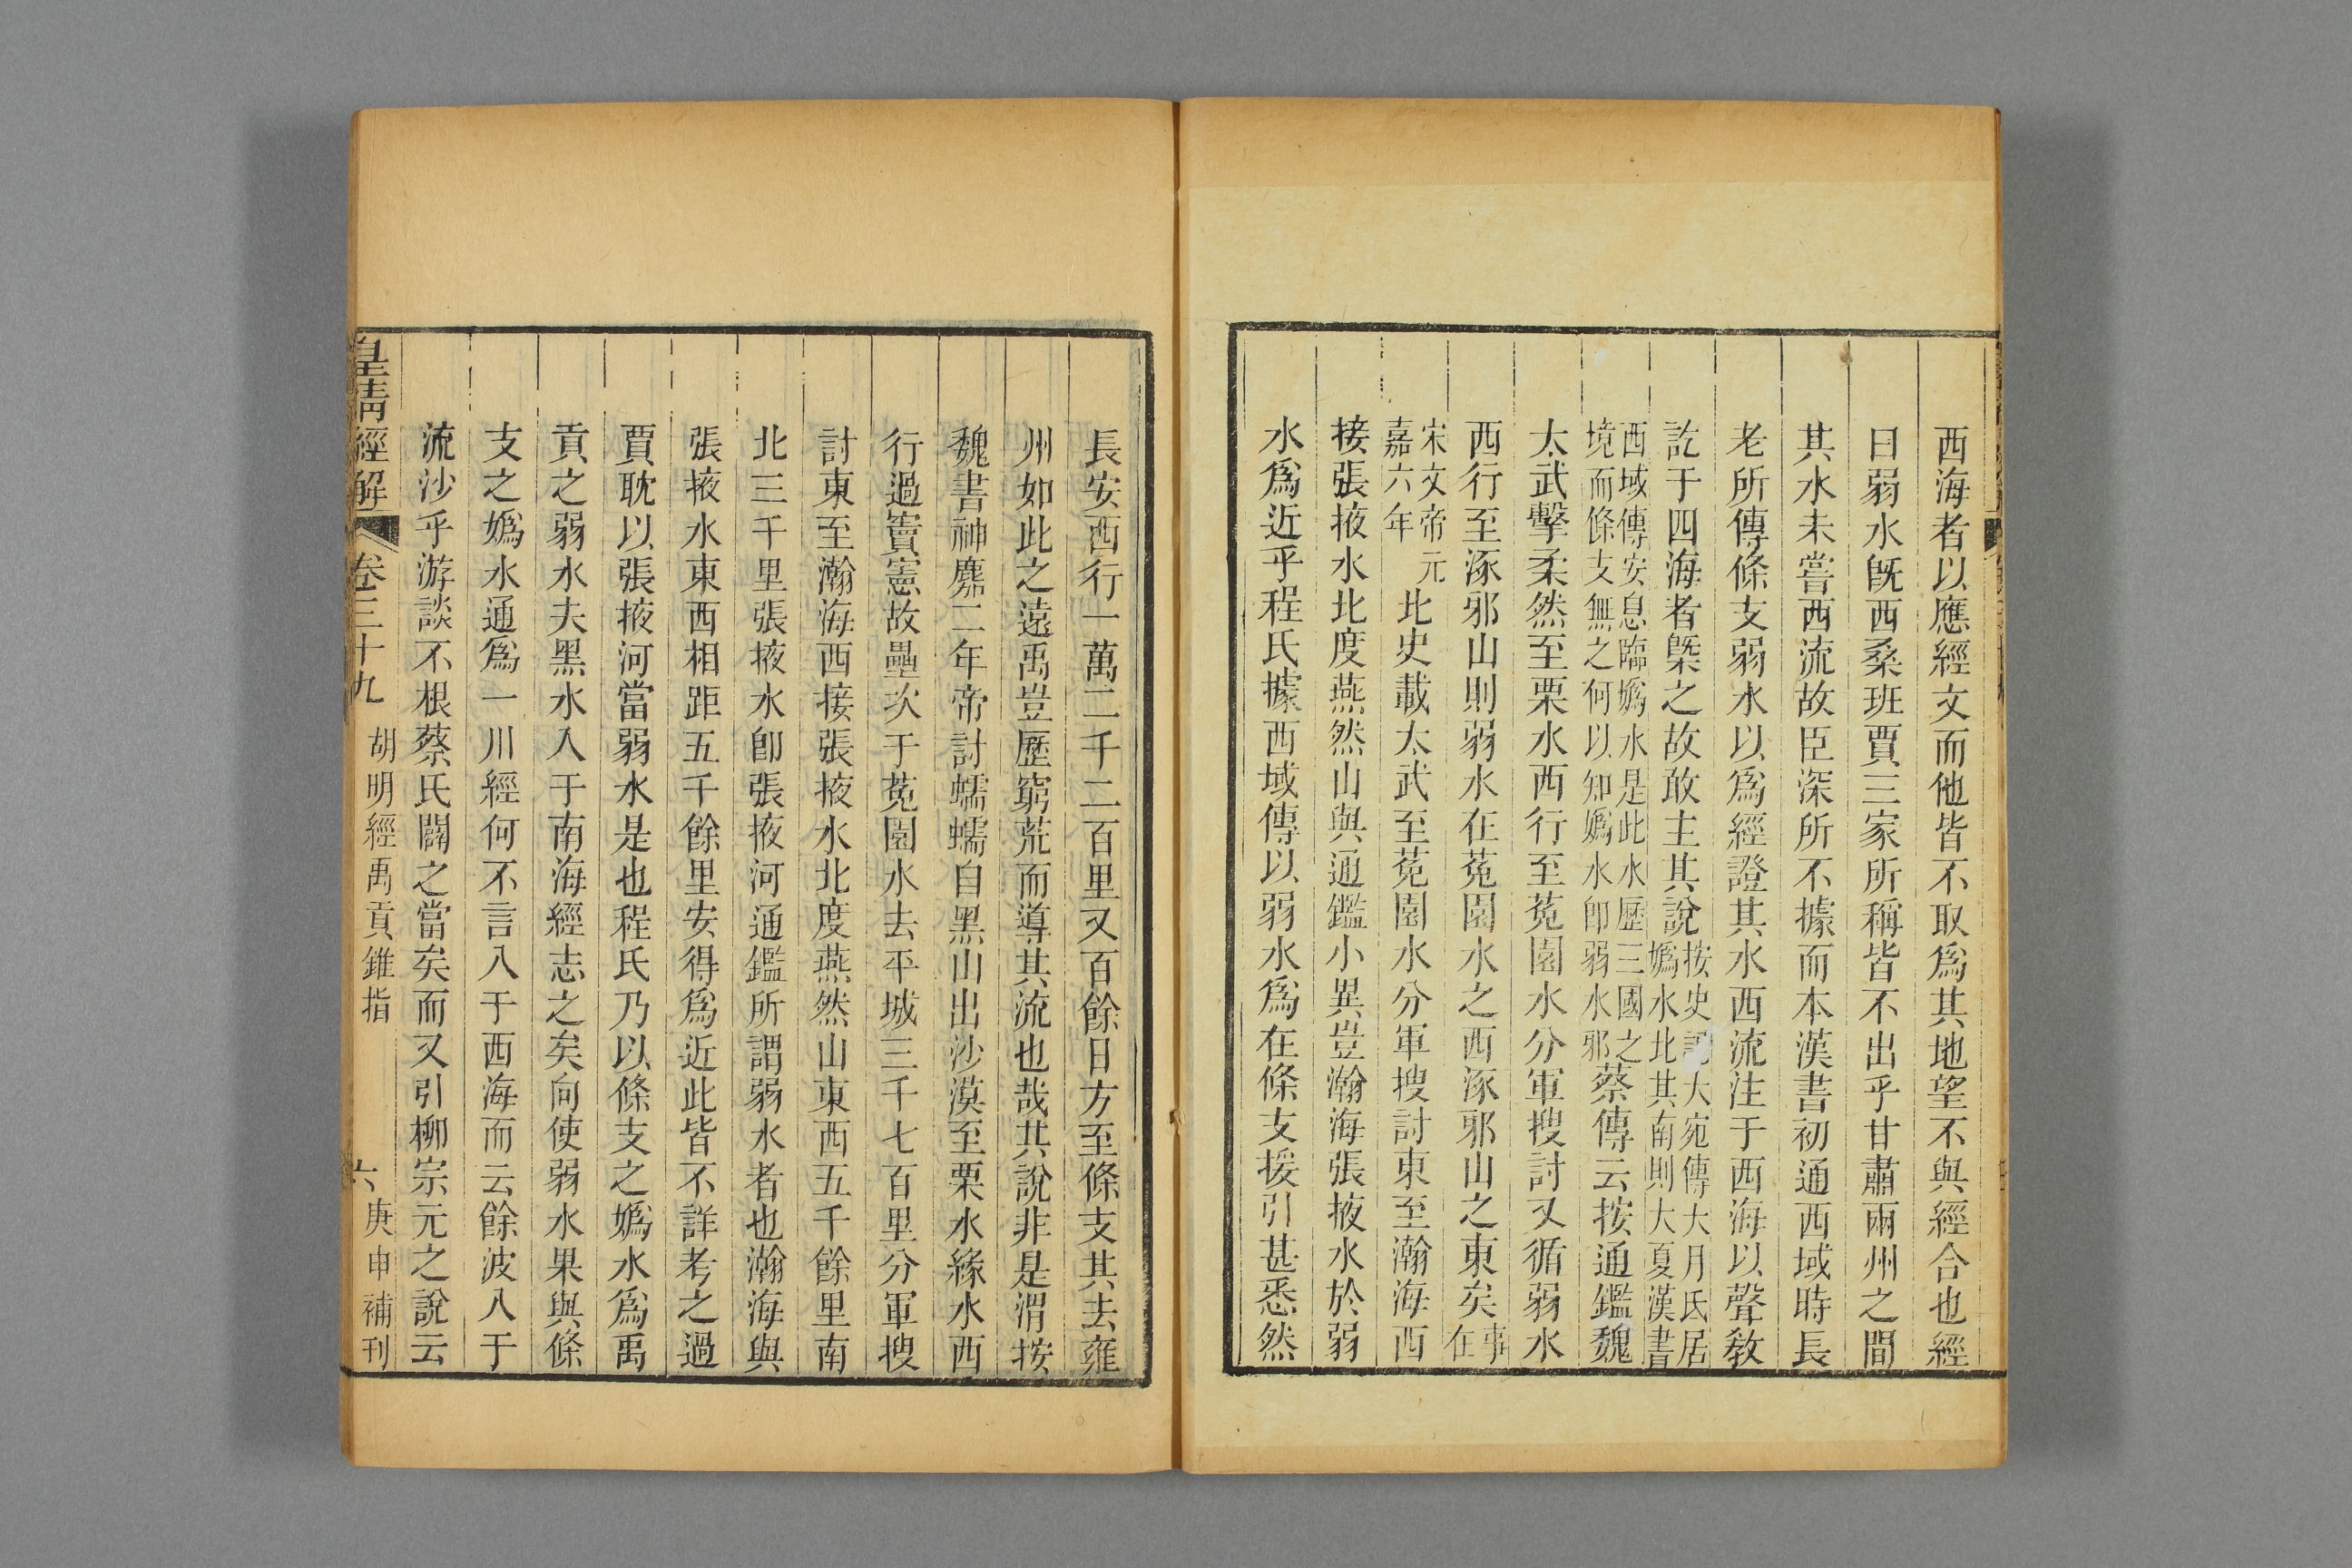 西海者以應經文而他皆不取爲其地望不與經合也經
曰弱水旣西桑班賈三家所稱皆不出乎甘肅兩州之間
其水未嘗西流故臣深所不據而本漢書初通西域時長
老所傳條支弱水以爲經證其水西流注于西海以聲敎
訖于四海者槩之故敢主其說按史記大宛傳大月氏居
嬀水北其南則大夏漢書
西域傳安息臨嬀水是此水歷三國之
境而條支無之何以知嬀水卽弱水邪蔡傳云按通鑑魏
太武擊柔然至栗水西行至菟園水分軍搜討又循弱水
西行至涿邪山則弱水在菟園水之西涿邪山之東矣事
在
宋文帝元
嘉六年北史載太武至菟園水分軍搜討東至瀚海西
接張掖水北度燕然山與通鑑小異豈瀚海張掖水於弱
水爲近乎程氏據西域傳以弱水爲在條支援引甚悉然
長安西行一萬二千二百里又百餘日方至條支其去雍
州如此之遠禹豈歷窮荒而導其流也哉其說非是渭按
魏書神麚二年帝討蠕蠕自黑山出沙漠至栗水緣水西
行過竇憲故壘次于菟園水去平城三千七百里分軍搜
討東至瀚海西接張掖水北度燕然山東西五千餘里南
北三千里張掖水卽張掖河通鑑所謂弱水者也瀚海與
張掖水東西相距五千餘里安得爲近此皆不詳考之過
賈耽以張掖河當弱水是也程氏乃以條支之嬀水爲禹
貢之弱水夫黑水入于南海經志之矣向使弱水果與條
支之嬀水通爲一川經何不言入于西海而云餘波入于
流沙乎游談不根蔡氏闢之當矣而又引柳宗元之說云
皇清經解 卷三十九 胡明經禹貢錐指 六 庚申補刊